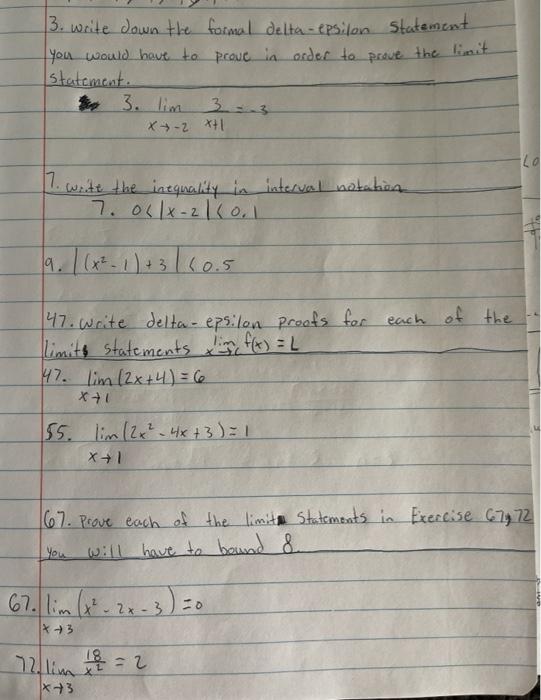 3. write down the formal delta-epsilon statement
you would have to prove in order to prove the limit
statement.
3. lim 3/x+1 = -3
x→-2
<0
7. write the inequality in interval notation
7. 0<|x-2|<0.1
9. |(x²-1)+3|<0.5
47. write delta-epsilon proofs for each of the
limits statements lim x→c f(x) = L
47. lim (2x+4) = 6
x→1
55. lim (2x²-4x+3) = 1
x→1
67. Prove each of the limit statements in Exercise 67, 72
you will have to bound δ.
67. lim (x²-2x-3) = 0
x→3
72. lim 18/x² = 2
x→3